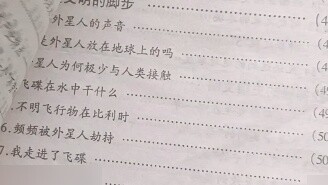 文明的脚步 …… (4
外星人的声音 …… (4
外星人放在地球上的吗 …… (4
星人为何极少与人类接触 …… (4
飞碟在水中干什么 …… (49
不明飞行物在比利时 …… (49
6.频频被外星人劫持 …… (50
7.我走进了飞碟 …… (50
…… (50